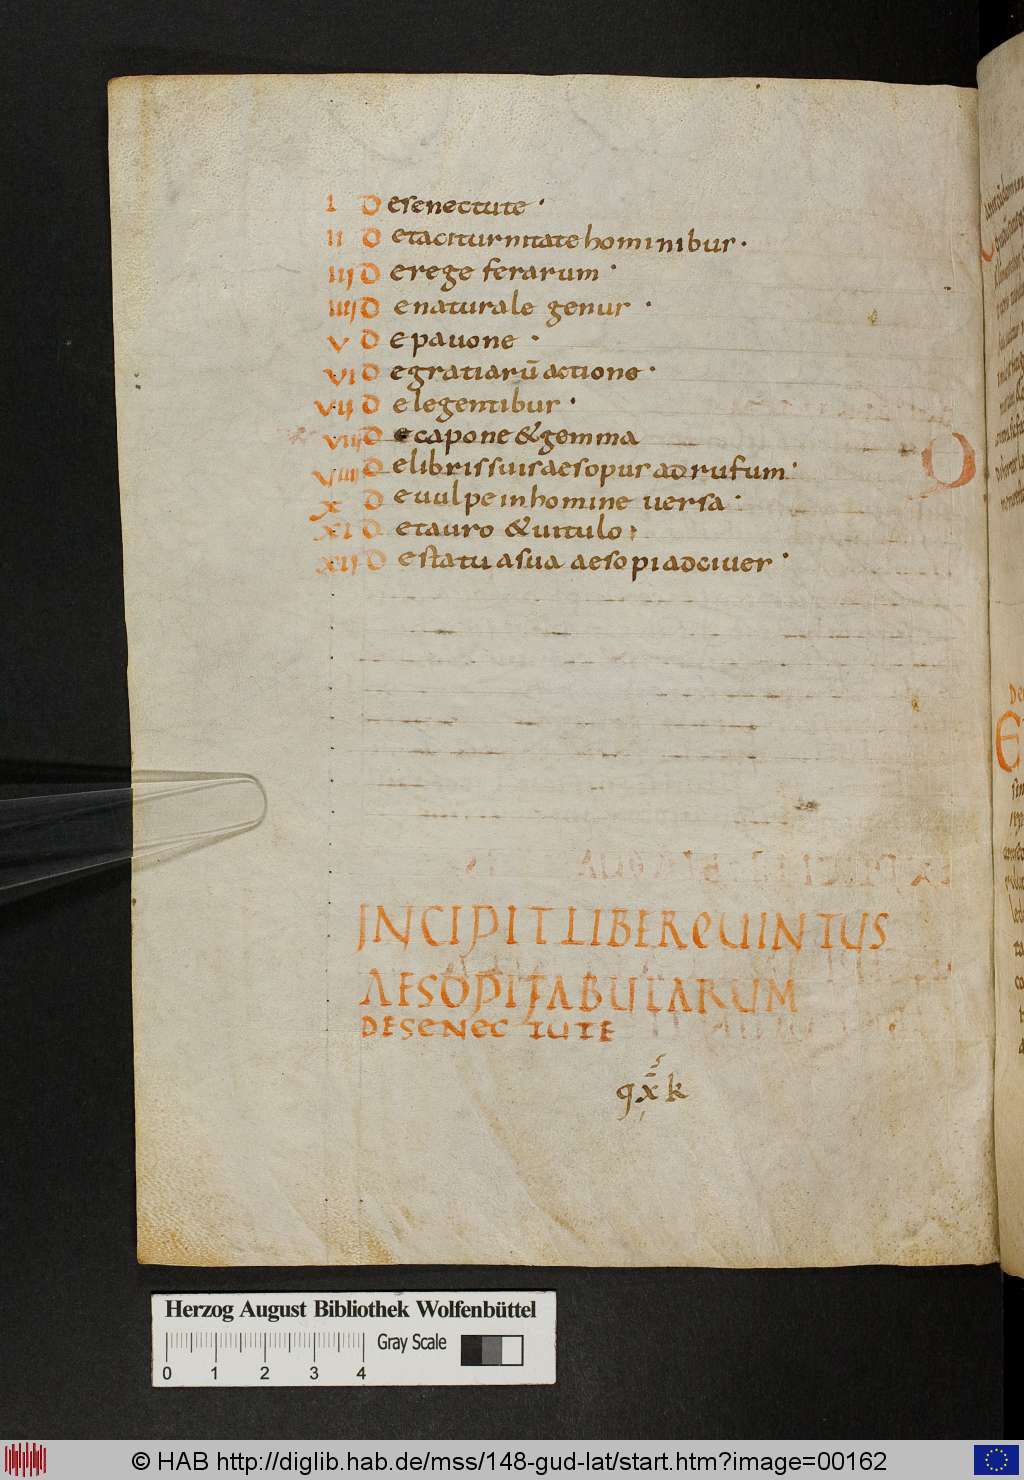 I De senectute ·
II De taciturnitate hominibus ·
IIJ De rege ferarum ·
IIIJ De naturale genus ·
V De pauone ·
VI De gratiarū actione ·
VIJ De legentibus ·
VIIJ De capone & gemma
VIIIJ De libris suis aesopus ad rufum ·
X De uulpe in homine uersa ·
XI De tauro & uitulo :
XIJ De statua sua aesopi ad ciues ·
INCIPIT LIBER QUINTUS
AESOPI FABULARUM
DE SENECTUTE
Herzog August Bibliothek Wolfenbüttel
Gray Scale
0 1 2 3 4
© HAB http://diglib.hab.de/mss/148-gud-lat/start.htm?image=00162